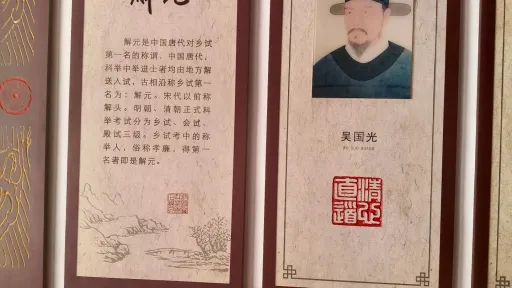 解元
解元是中国唐代对乡试
第一名的称谓。中国唐代，
科举中举进士者均由地方解
送入试，古相沿称乡试第一
名为：解元。宋代以前称
解头。明朝、清朝正式科
举考试分为乡试、会试、
殿试三级。乡试考中的称
举人，俗称孝廉，得第一
名者即是解元。
吴国光
WU GUO GUANG
清正
直道